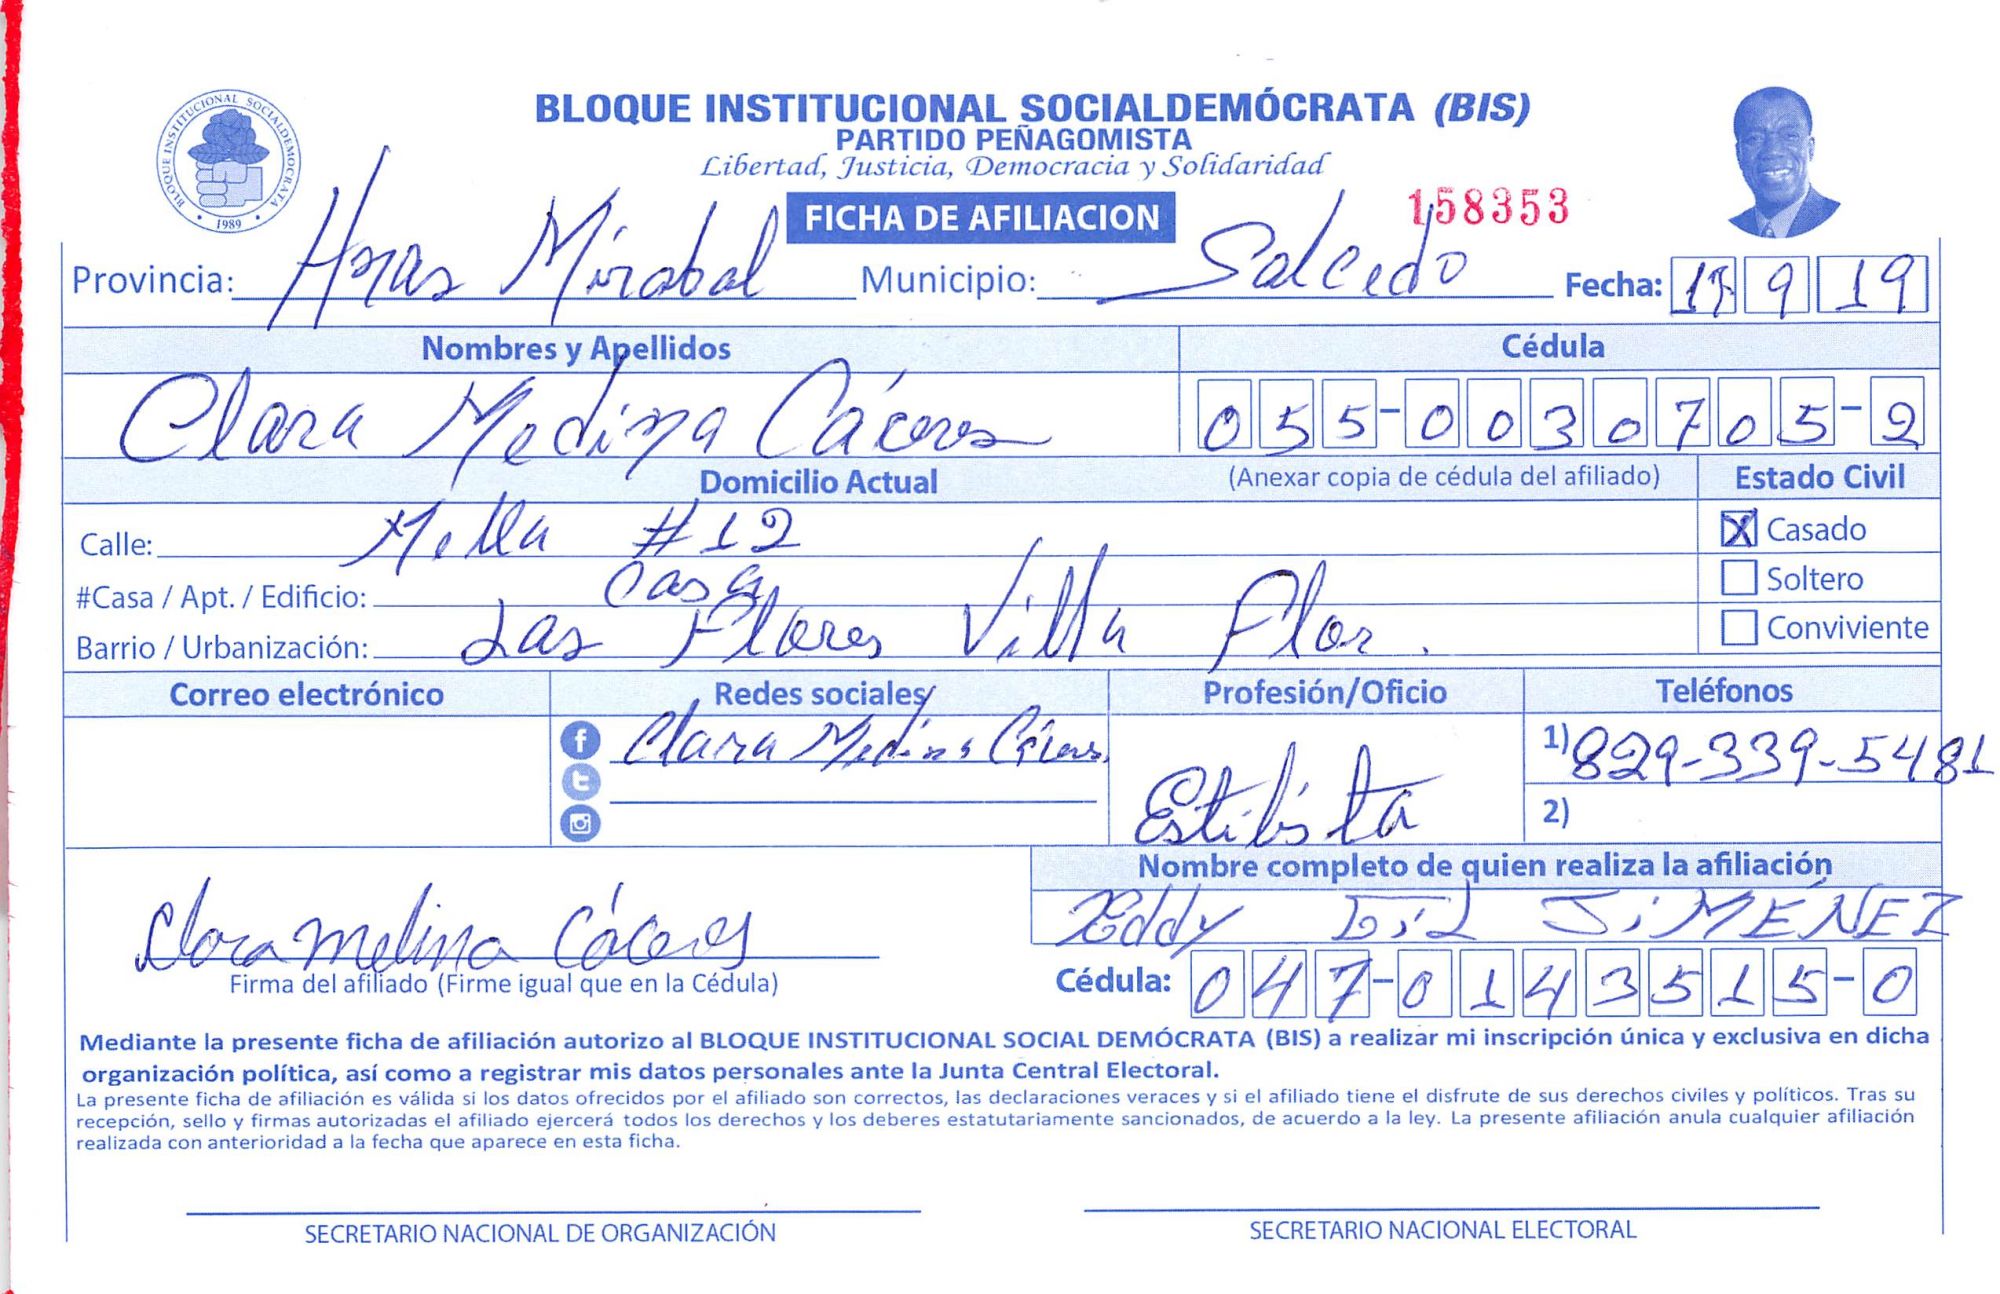 BLOQUE INSTITUCIONAL SOCIALDEMÓCRATA
1989
BLOQUE INSTITUCIONAL SOCIALDEMÓCRATA (BIS)
PARTIDO PEÑAGOMISTA
Libertad, Justicia, Democracia y Solidaridad
FICHA DE AFILIACION 158353
Provincia: Hnas Mirabal Municipio: Salcedo Fecha: 9 19
Nombres y Apellidos Cédula
Clara Medina Cáceres 055-0030705-2
Domicilio Actual (Anexar copia de cédula del afiliado) Estado Civil
Calle: Mella #12 X Casado
#Casa / Apt. / Edificio: Casa Soltero
Barrio / Urbanización: Las Flores Villa Flor. Conviviente
Correo electrónico Redes sociales Profesión/Oficio Teléfonos
f Clara Medina Cáceres Estilista 1) 829-339-5481
2)
Nombre completo de quien realiza la afiliación
Clara Medina Cáceres Eddy Gil JiMENEZ
Firma del afiliado (Firme igual que en la Cédula) Cédula: 047-0143515-0
Mediante la presente ficha de afiliación autorizo al BLOQUE INSTITUCIONAL SOCIAL DEMÓCRATA (BIS) a realizar mi inscripción única y exclusiva en dicha
organización política, así como a registrar mis datos personales ante la Junta Central Electoral.
La presente ficha de afiliación es válida si los datos ofrecidos por el afiliado son correctos, las declaraciones veraces y si el afiliado tiene el disfrute de sus derechos civiles y políticos. Tras su
recepción, sello y firmas autorizadas el afiliado ejercerá todos los derechos y los deberes estatutariamente sancionados, de acuerdo a la ley. La presente afiliación anula cualquier afiliación
realizada con anterioridad a la fecha que aparece en esta ficha.
SECRETARIO NACIONAL DE ORGANIZACIÓN SECRETARIO NACIONAL ELECTORAL